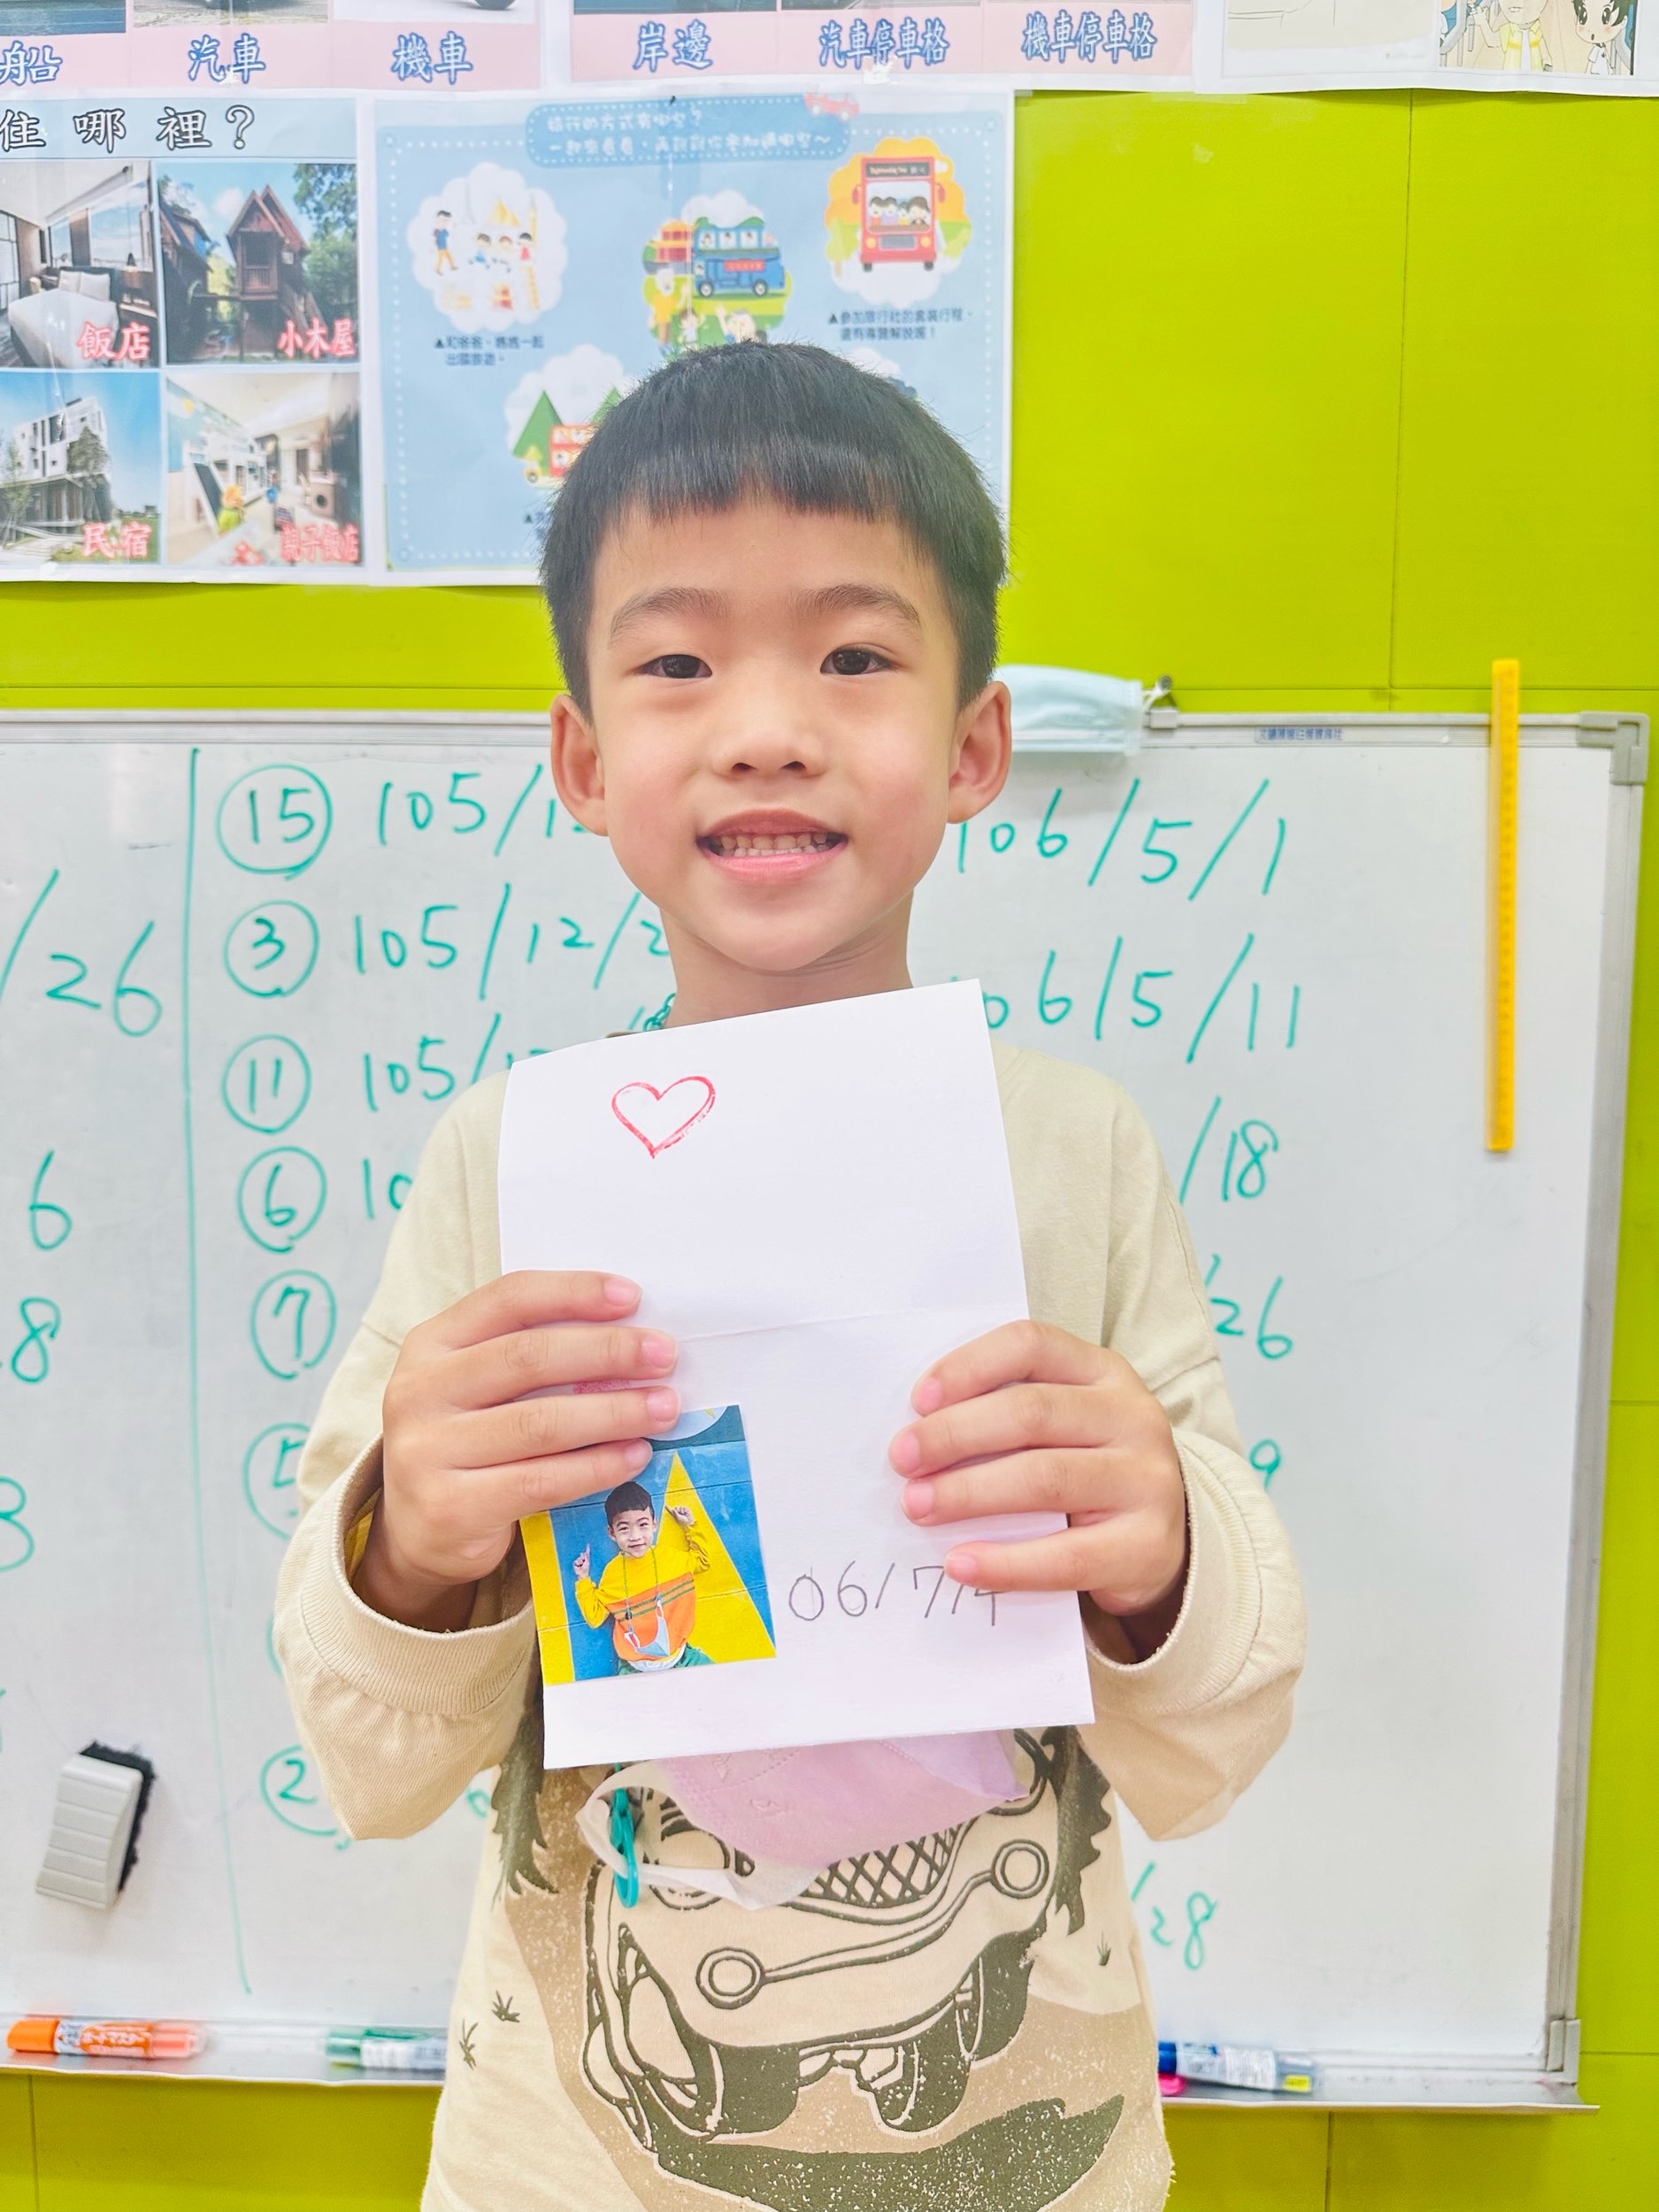 船 汽車 機車
岸邊 汽車停車格 機車停車格
住哪裡?
飯店 小木屋
民宿 親子飯店
旅行的方式有哪些?
▲和爸爸、媽媽一起
出國旅遊。
▲參加旅行社的套裝行程,
還有導覽解說喔!
15 105/1
3 105/12/2
11 105/1
6 10
7
5
2
/26
6
8
3
106/5/1
06/5/11
/18
/26
9
/28
06/7/4